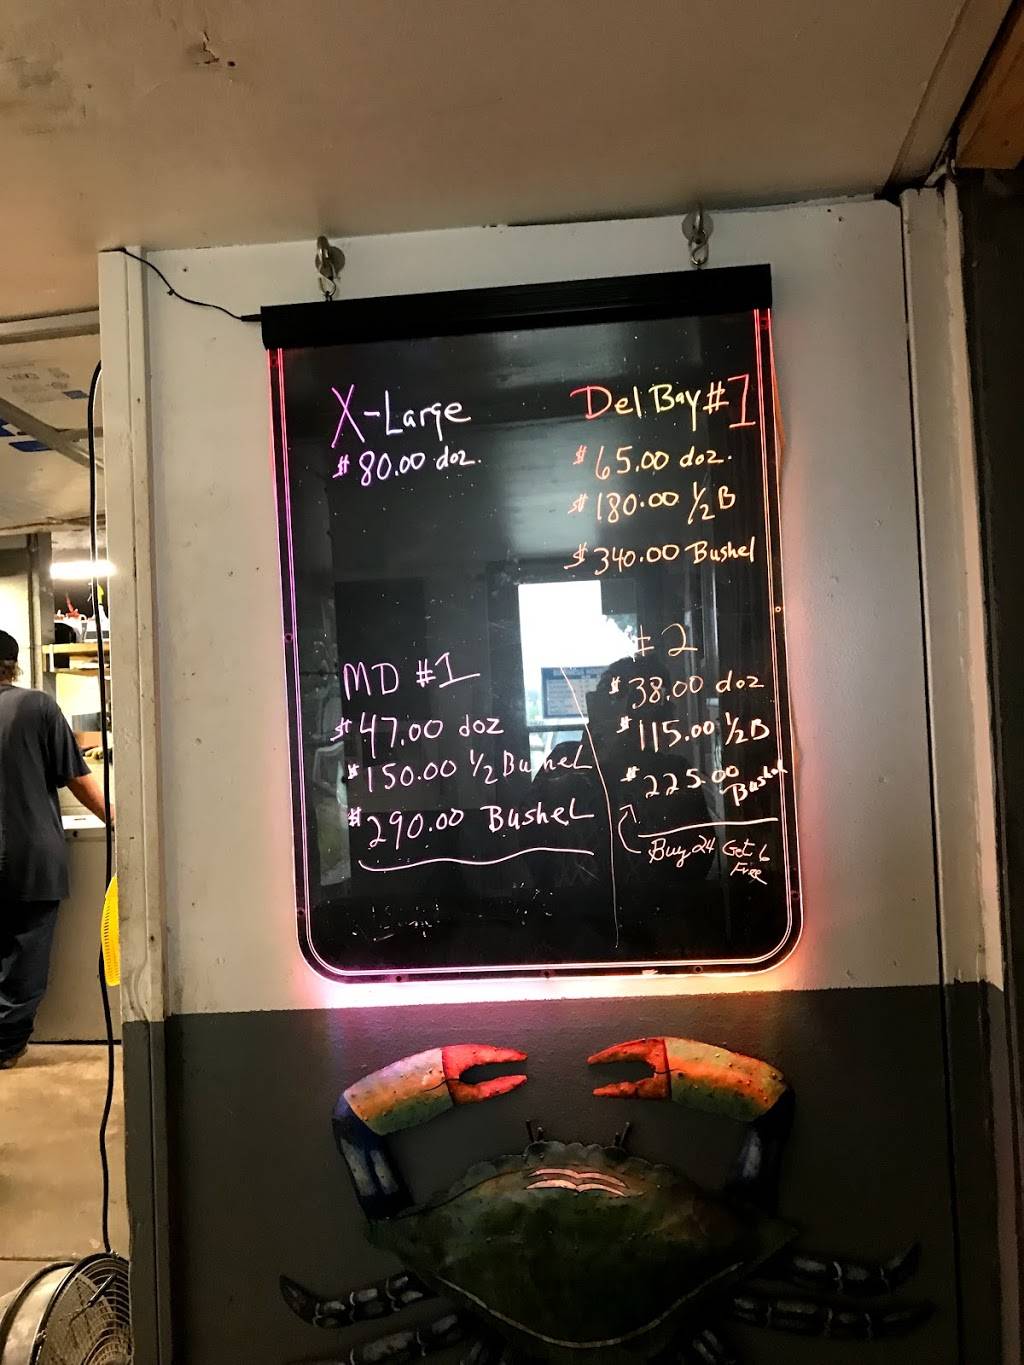 X-Large
$80.00 doz.
Del Bay #1
$65.00 doz.
$180.00 1/2 B
$340.00 Bushel
MD #1
$47.00 doz
$150.00 1/2 Bushel
$290.00 Bushel
#2
$38.00 doz
$115.00 1/2 B
$225.00 Bushel
Buy 24 Get 6
Free